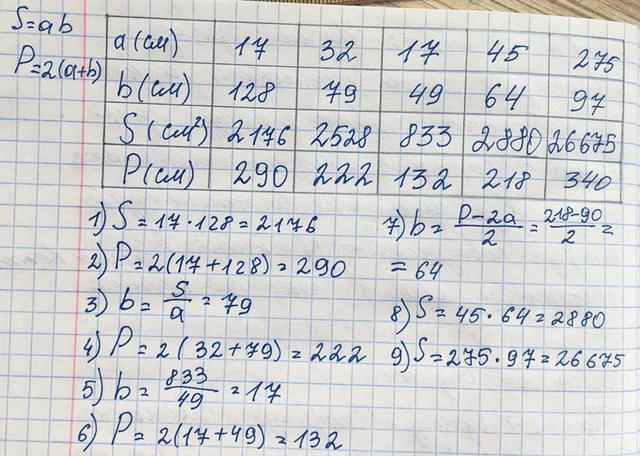 S=ab
P=2(a+b)
a (см) 17 32 17 45 275
b (см) 128 79 49 64 97
S (см²) 2176 2528 833 2880 26675
P (см) 290 222 132 218 340
1) S = 17 · 128 = 2176
2) P = 2(17+128) = 290
3) b = S/a = 79
4) P = 2(32+79) = 222
5) b = 833/49 = 17
6) P = 2(17+49) = 132
7) b = P-2a/2 = 218-90/2 =
= 64
8) S = 45 · 64 = 2880
9) S = 275 · 97 = 26675